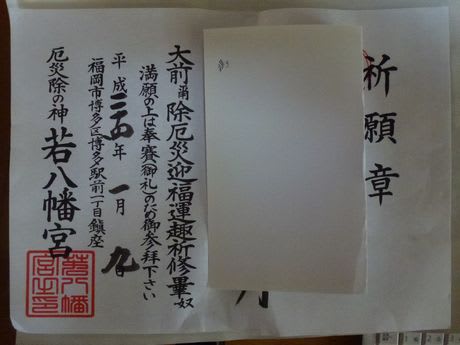 祈願章
大前ニ甪除厄災迎福運趣祈修畢奴
満願の上は奉賽(御礼)のため御参拝下さい
平成二十四年一月九日
福岡市博多区博多駅前一丁目鎮座
厄災除の神 若八幡宮
若八幡宮之印